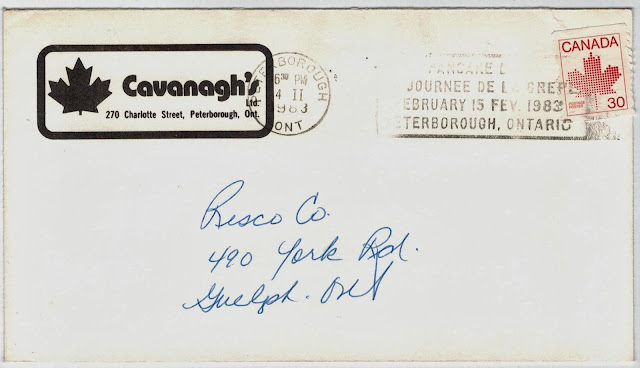 Cavanagh's
Ltd.
270 Charlotte Street, Peterborough, Ont.
PETERBOROUGH
6 30 PM
4 II
1983
ONT
PANCAKE
JOURNEE DE LA CREPE
FEBRUARY 15 FEV. 1983
PETERBOROUGH, ONTARIO
CANADA
30
Resco Co.
490 York Rd.
Guelph. Ont